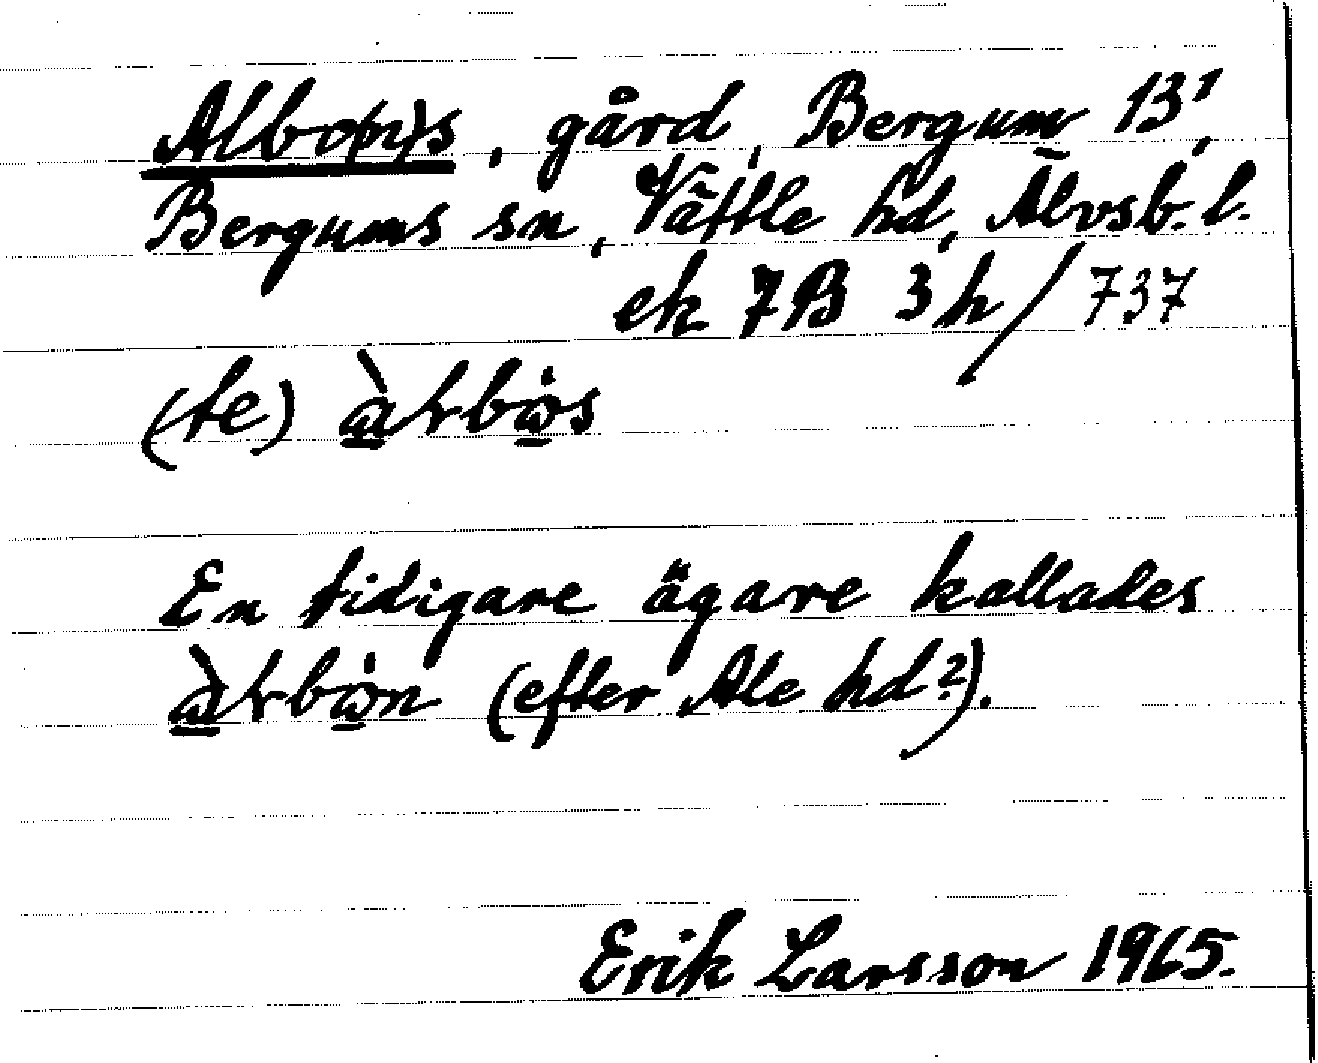 Albo(n)s, gård, Bergum 13¹,
Bergums sn, Vättle hd, Älvsb. l.
ek 7B 3h/737
(te)
En tidigare ägare kallades
(efter Ale hd?).
Erik Larsson 1965.